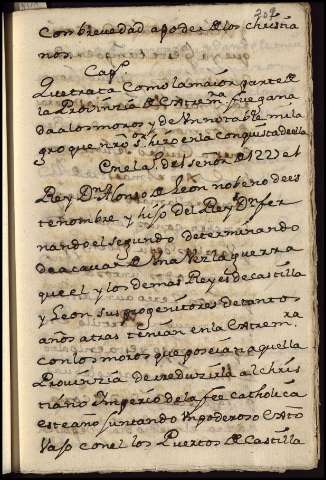 con brevedad a poder de los christia
nos.
Cap.º
Que trata como la maior parte de
la Provinzia de extrem.ra fue gana
da a los moros y de un notable mila
gro que nro s.or hizo en la conquista de ella
En el a.º del señor d 1227 el
Rey D.n Alonso de Leon nobeno de es
te nombre y hijo del Rey D.n fer
nando el segundo determinando
de acavar de una vez la guerra
que el y los demas Reyes de castilla
y Leon sus progenitores de tantos
años atras tenian en la extrem.ra
con los moros que poseian aquella
Provinzia de reduzirla al chris
tiano Imperio de la fee catholica
este año juntando un poderoso exto
vaso con el los Puertos de Castilla